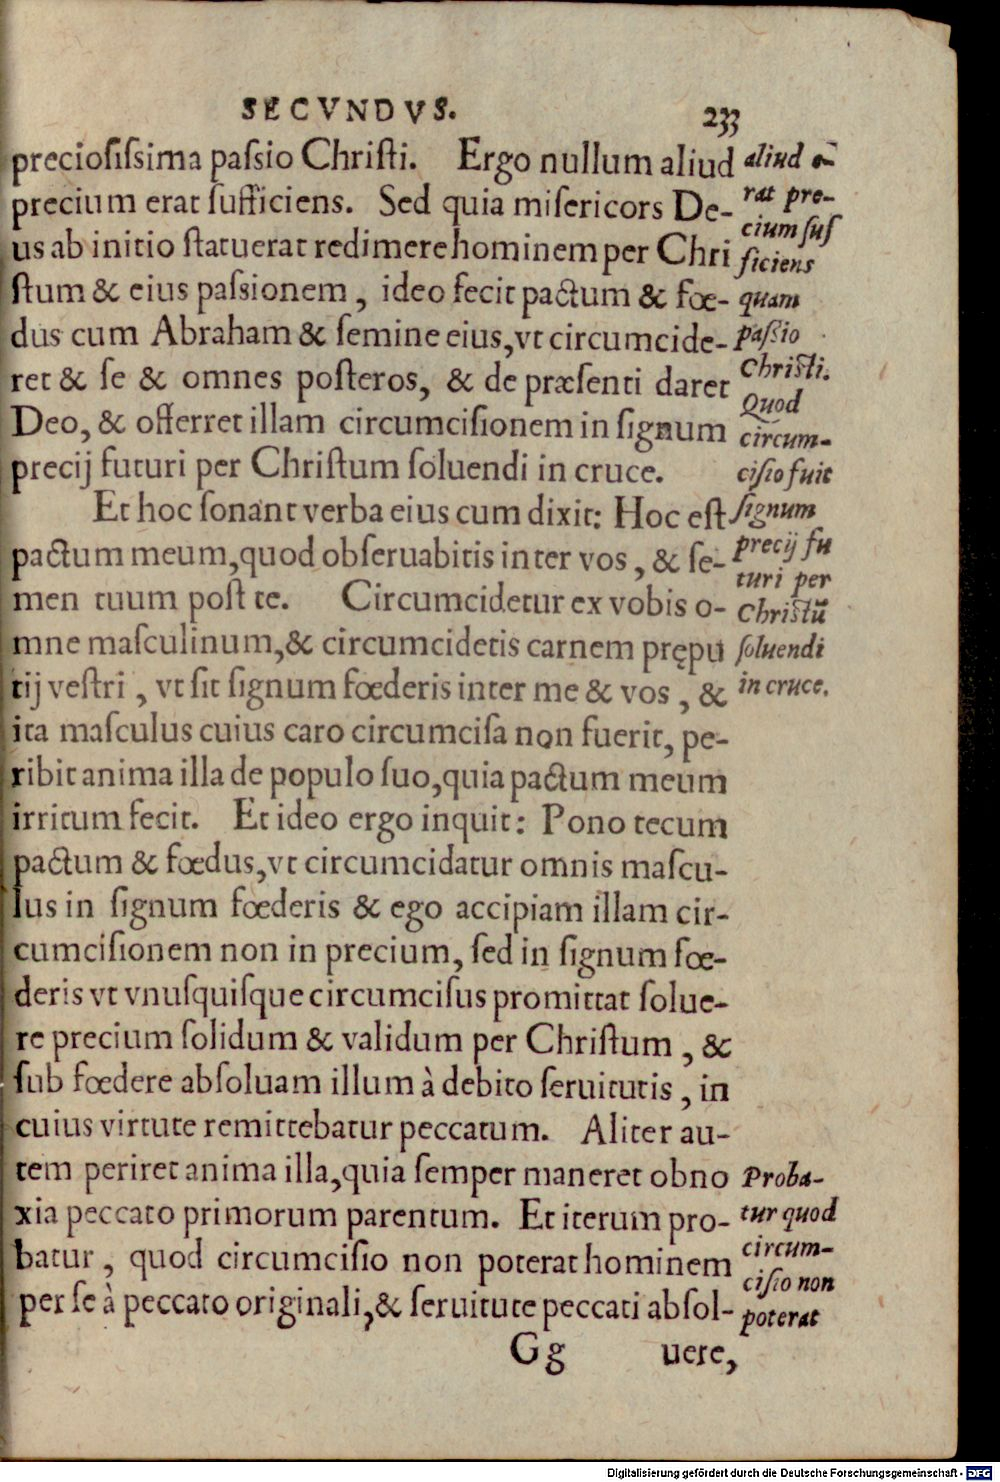 SECVNDVS. 233
preciosissima passio Christi. Ergo nullum aliud
precium erat sufficiens. Sed quia misericors De-
us ab initio statuerat redimere hominem per Chri
stum & eius passionem, ideo fecit pactum & fœ-
dus cum Abraham & semine eius, vt circumcide-
ret & se & omnes posteros, & de præsenti daret
Deo, & offerret illam circumcisionem in signum
precij futuri per Christum soluendi in cruce.
Et hoc sonant verba eius cum dixit: Hoc est
pactum meum, quod obseruabitis inter vos, & se-
men tuum post te. Circumcidetur ex vobis o-
mne masculinum, & circumcidetis carnem prępu
tij vestri, vt sit signum fœderis inter me & vos, &
ita masculus cuius caro circumcisa non fuerit, pe-
ribit anima illa de populo suo, quia pactum meum
irritum fecit. Et ideo ergo inquit: Pono tecum
pactum & fœdus, vt circumcidatur omnis mascu-
lus in signum fœderis & ego accipiam illam cir-
cumcisionem non in precium, sed in signum fœ-
deris vt vnusquisque circumcisus promittat solue-
re precium solidum & validum per Christum, &
sub fœdere absoluam illum à debito seruitutis, in
cuius virtute remittebatur peccatum. Aliter au-
tem periret anima illa, quia semper maneret obno
xia peccato primorum parentum. Et iterum pro-
batur, quod circumcisio non poterat hominem
per se à peccato originali, & seruitute peccati absol-
Gg uere,
aliud e-
rat pre-
cium suf
ficiens
quam
passio
Christi.
Quod
circum-
cisio fuit
signum
precij fu
turi per
Christũ
soluendi
in cruce.
Proba-
tur quod
circum-
cisio non
poterat
Digitalisierung gefördert durch die Deutsche Forschungsgemeinschaft - DFG